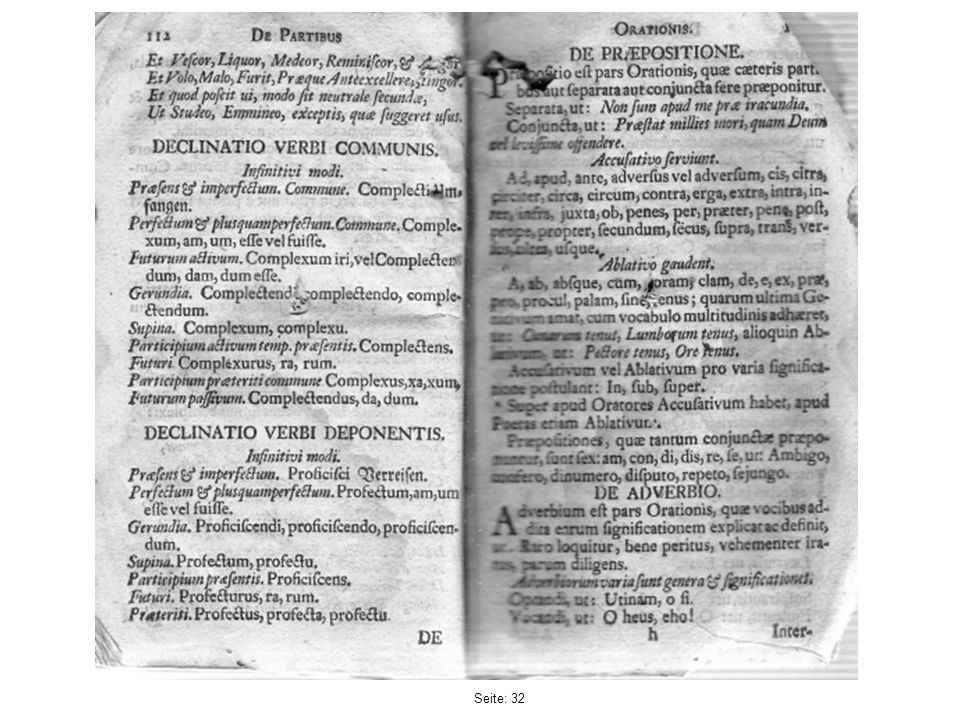 112 DE PARTIBUS
Et Veſcor, Liquor, Medeor, Reminiſcor, &
Et Volo, Malo, Furit, Præque Anteexcellere,
Et quod poſcit ui, modo ſit neutrale ſecundæ,
Ut Studeo, Emmineo, exceptis, quæ ſuggeret uſus.
DECLINATIO VERBI COMMUNIS.
Infinitivi modi.
Præſens & imperfectum. Commune. Complecti
fangen.
Perfectum & plusquamperfectum. Commune. Comple-
xum, am, um, eſſe vel fuiſſe.
Futurum activum. Complexum iri, vel Complecten
dum, dam, dum eſſe.
Gerundia. Complectendi complectendo, comple-
ctendum.
Supina. Complexum, complexu.
Participium activum temp. præſentis. Complectens.
Futuri Complexurus, ra, rum.
Participium præteriti commune Complexus, xa, xum,
Futurum paſſivum. Complectendus, da, dum.
DECLINATIO VERBI DEPONENTIS.
Infinitivi modi.
Præſens & imperfectum. Proficiſci Verreiſen.
Perfectum & plusquamperfectum. Profectum, am, um
eſſe vel fuiſſe.
Gerundia. Proficiſcendi, proficiſcendo, proficiſcen-
dum.
Supina. Profectum, profectu.
Participium præſentis. Proficiſcens.
Futuri. Profecturus, ra, rum.
Præteriti. Profectus, profecta, profectu
DE
ORATIONIS.
DE PRÆPOSITIONE.
Præpoſitio eſt pars Orationis, quæ cæteris part.
bus aut ſeparata aut conjuncta fere præponitur.
Separata, ut: Non ſum apud me præ iracundia.
Conjuncta, ut: Præſtat millies mori, quam Deum
vel leviſſime offendere.
Accuſativo ſerviunt.
Ad, apud, ante, adverſus vel adverſum, cis, citra,
circiter, circa, circum, contra, erga, extra, intra, in-
ter, infra, juxta, ob, penes, per, præter, pene, poſt,
prope, propter, ſecundum, ſecus, ſupra, trans, ver-
uſque.
Ablativo gaudent.
A, ab, abſque, cum, coram, clam, de, e, ex, præ,
pro, procul, palam, ſine, tenus; quarum ultima Ge-
nitivum amat, cum vocabulo multitudinis adhæret,
ut: tenus, Lumborum tenus, alioquin Ab-
lativum, ut: Pectore tenus, Ore tenus.
Accuſativum vel Ablativum pro varia ſignifica-
tione poſtulant: In, ſub, ſuper.
* Super apud Oratores Accuſativum habet, apud
Poetas etiam Ablativum.
Præpoſitiones, quæ tantum conjunctæ præpo-
nuntur, ſunt ſex: am, con, di, dis, re, ſe, ut: Ambigo,
confero, dinumero, diſputo, repeto, ſejungo.
DE ADVERBIO.
Adverbium eſt pars Orationis, quæ vocibus ad-
dita earum ſignificationem explicat ac definit,
ut Raro loquitur, bene peritus, vehementer ira-
tus, parum diligens.
Adverbiorum varia ſunt genera & ſignificationes.
Optandi, ut: Utinam, o ſi.
Vocandi, ut: O heus, eho!
h Inter-
Seite: 32